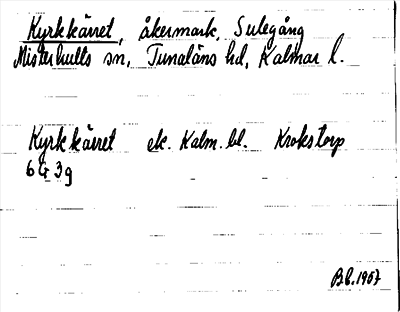 Kyrkkärret, åkermark, Sulegång
Misterhults sn, Tunaläns hd, Kalmar l.
Kyrkkärret ek. Kalm. bl. Krokstorp
6 G 3 g
B.C. 1967